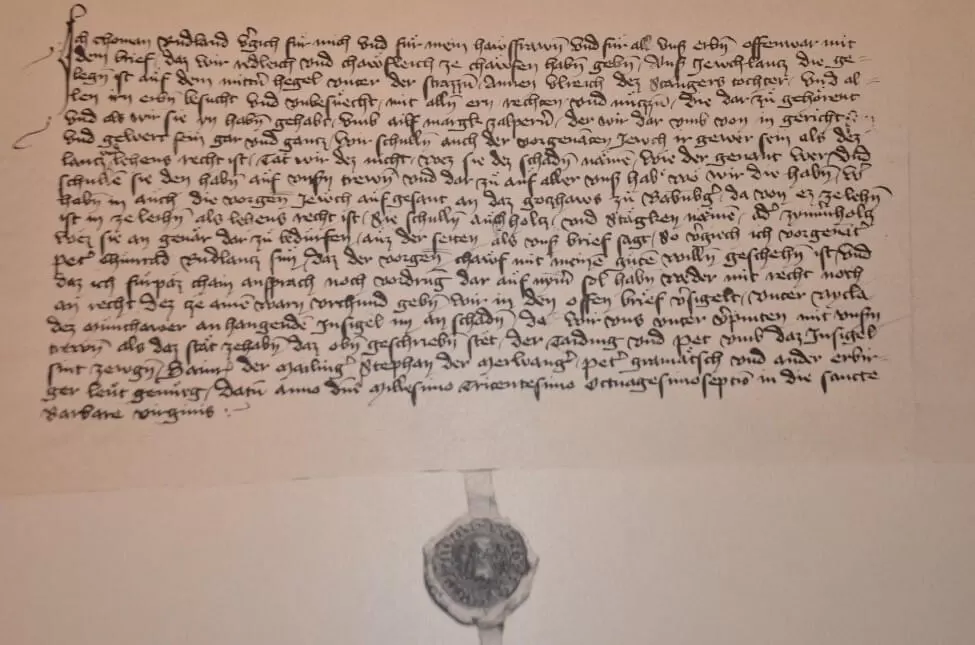 Ich thoman Rudland v͛gich für mich vnd für mein hawsfrawn̄ vnd für all vns̄ erbn̄ offenwar mit
dem brief, daz wir redleich vnd chawfleich ze chawfen habn̄ gebn̄, Jewchlantz die ge-
legn̄ ist auf dem mitn̄ hegel vnter der strazzn̄, Annen vlreich dez Stangers tochter, vnd al-
len irn erbn̄ besucht vnd vnbesuecht, mit alln̄ ern, rechten vnd nützn̄, die dar zu gehörent
vnd als wir sie in habn̄ gehabt, vmb ailf margk zalpern̄, der wir dar vmb von in gericht
vnd gewert sein gar vnd gantz, wir schulln̄ auch der vorgenāten Jewch ir gewer sein als dez
lantz lehens recht ist, Tät wir dez nicht, wez sie dez schadn̄ näme, wie der genant wer, vnd
schullē sie den habn̄ auf vnsn̄ trewn̄ vnd dar zu auf aller vns̄ hab, wo wir die habn̄, wir
habn̄ in auch die vorgen̄ Jewch auf gesant an daz gozhaws zu Babnbg͛, da von ez ze lehn̄
ist in ze leihn̄ als lehens recht ist, Sie schulln̄ auch holtz, vnd Stägken nämē, od͛ zymm͛holtz
wez sie an genär dar zu bedürfen, auz der seiten als vns̄ brief sagt, So v͛gich ich vorgenāt͛
Pet͛ Chunrad Rudlantz sun, daz der vorgen̄ chawf mit meinē gutē willn̄ geschehn̄ ist, vnd
daz ich fürpaz chain ansprach noch vodrūg dar auf nym͛ sol habn̄ weder mit recht noch
an recht, dez ze ainē warn̄ vrchund gebn̄ wir in den offen brief v͛sigelt, vnter Nycla
dez Münchawer an hangendē Insigel im an schadn̄, da wir vns vnter v͛pinten mit vnsn̄
trewn̄ als daz stät zehabn̄ daz obn̄ geschriebn̄ stet, der Taiding vnd pet vmb daz Insigel
sint zewgn̄, der Mailing͛, Stephan der Merwang͛, Pet͛ gramätsch vnd ander erbn̄-
ger leüt genūg, Datū anno dn̄i Millesimo Tricentesimo Octuagesimoseptīo in die sancte
Barbare virginis